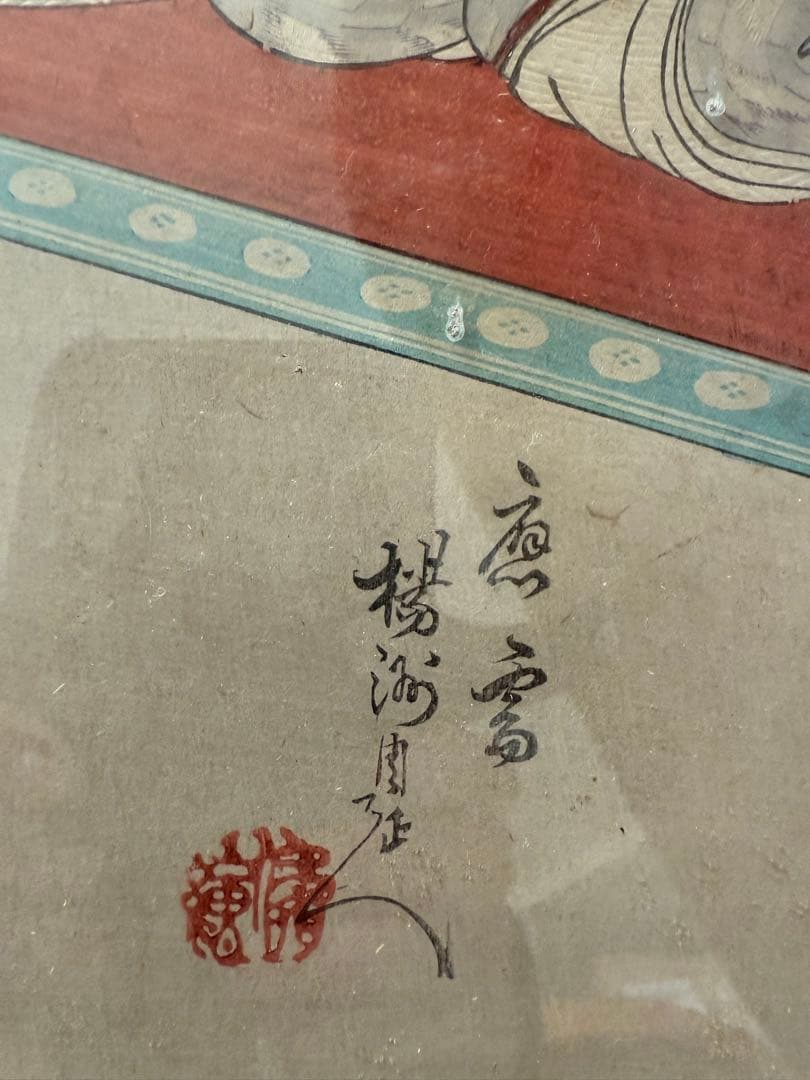 應需
楊洲周延